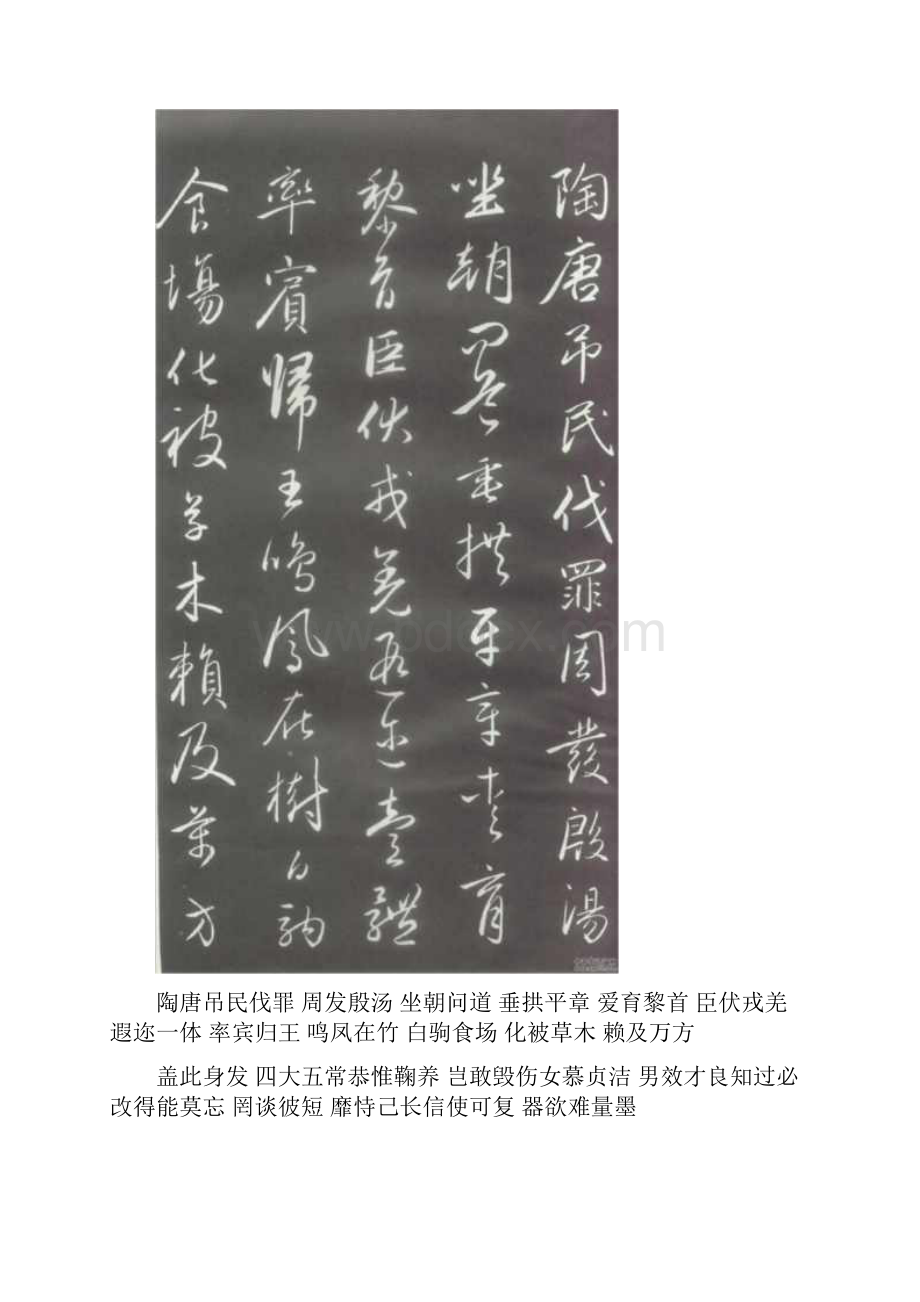 陶唐吊民伐罪周發殷湯
坐朝問道垂拱平章愛育
黎首臣伏戎羌遐迩壹體
率賓歸王鳴鳳在樹白駒
食場化被草木賴及萬方
www.bdocx.com
陶唐吊民伐罪 周发殷汤 坐朝问道 垂拱平章 爱育黎首 臣伏戎羌
遐迩一体 率宾归王 鸣凤在竹 白驹食场 化被草木 赖及万方
盖此身发 四大五常恭惟鞠养 岂敢毁伤女慕贞洁 男效才良知过必
改得能莫忘 罔谈彼短 靡恃己长信使可复 器欲难量墨